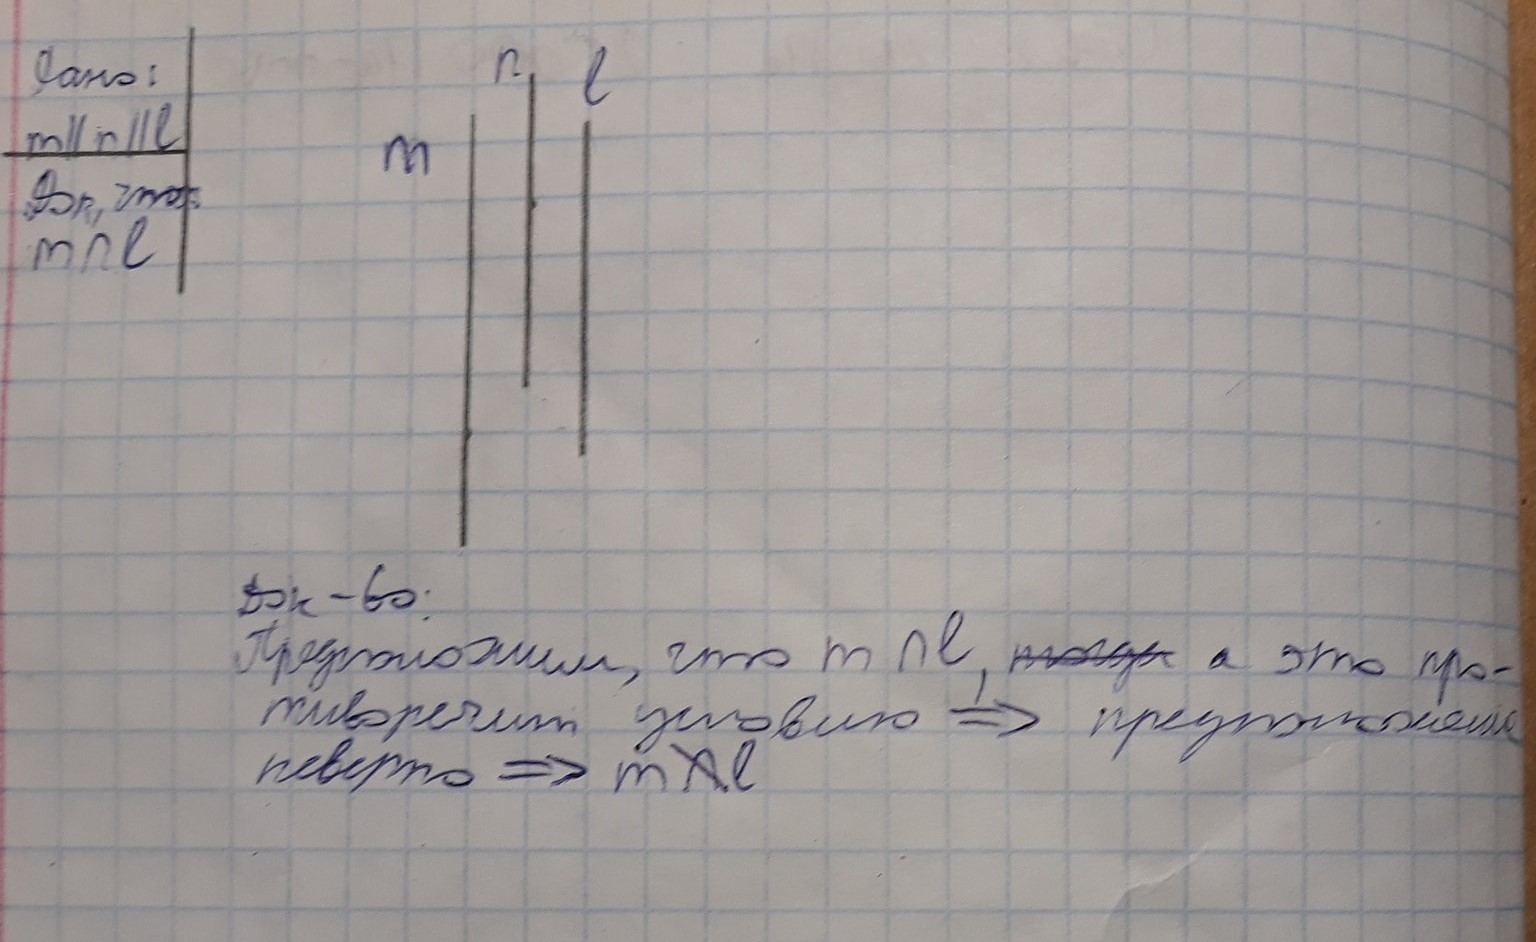 Дано:
m||n||l
Док, что:
m∩l
n
l
m
Док-во:
Предположим, что m∩l, а это про-
тиворечит условию => предположение
неверно => m∩̸l